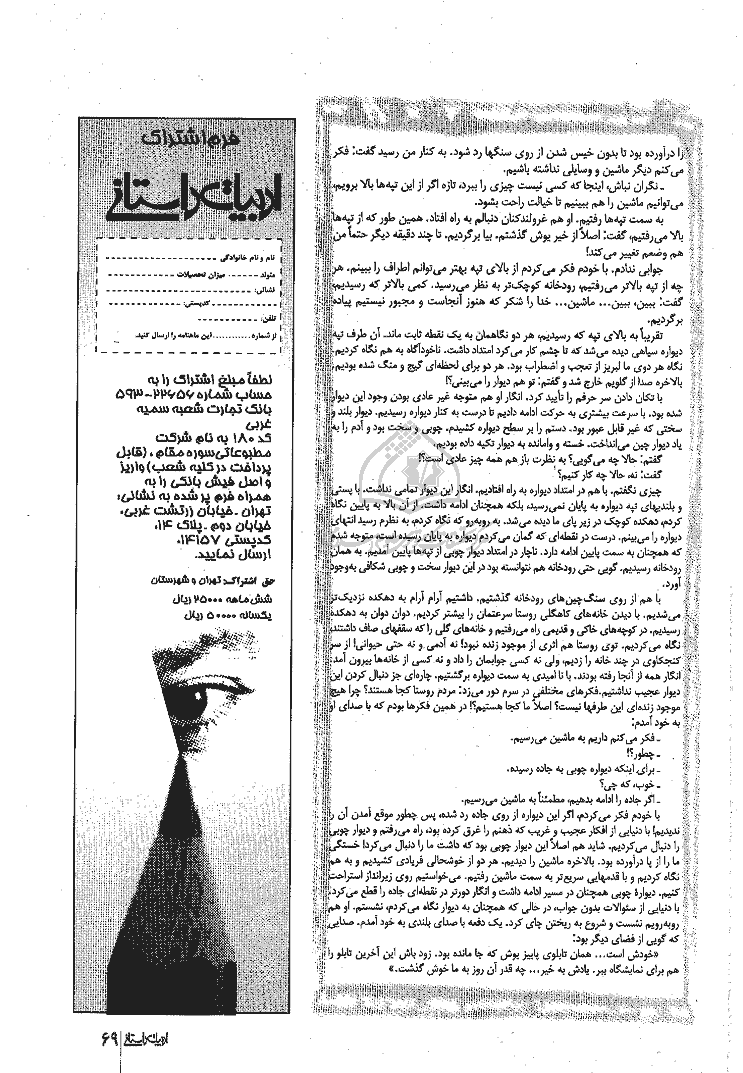 را درآورده بود تا بدون خیس شدن از روی سنگها رد شود. به کنار من رسید گفت: فکر
می‌کنم دیگر ماشین و وسایلی نداشته باشیم.
ـ نگران نباش، اینجا که کسی نیست چیزی را ببرد، تازه اگر از این تپه‌ها بالا برویم،
می‌توانیم ماشین را هم ببینیم تا خیالت راحت بشود.
به سمت تپه‌ها رفتیم. او هم غرولندکنان دنبالم به راه افتاد. همین طور که از تپه‌ها
بالا می‌رفتیم، گفت: اصلاً از خیر یوش گذشتم. بیا برگردیم. تا چند دقیقه دیگر حتماً من
هم وضعم تغییر می‌کند!
جوابی ندادم. با خودم فکر می‌کردم از بالای تپه بهتر می‌توانم اطراف را ببینم. هر
چه از تپه بالاتر می‌رفتیم، رودخانه کوچک‌تر به نظر می‌رسید. کمی بالاتر که رسیدیم،
گفت: ببین، ببین... ماشین... خدا را شکر که هنوز آنجاست و مجبور نیستیم پیاده
برگردیم.
تقریباً به بالای تپه که رسیدیم، هر دو نگاهمان به یک نقطه ثابت ماند. آن طرف تپه
دیواره سیاهی دیده می‌شد که تا چشم کار می‌کرد امتداد داشت. ناخودآگاه به هم نگاه کردیم.
نگاه هر دوی ما لبریز از تعجب و اضطراب بود. هر دو برای لحظه‌ای گیج و منگ شده بودیم.
بالاخره صدا از گلویم خارج شد و گفتم: تو هم دیوار را می‌بینی؟!
با تکان دادن سر حرفم را تأیید کرد. انگار او هم متوجه غیر عادی بودن وجود این دیوار
شده بود. با سرعت بیشتری به حرکت ادامه دادیم تا درست به کنار دیواره رسیدیم. دیوار بلند و
سختی که غیر قابل عبور بود. دستم را بر سطح دیواره کشیدم. چوبی و سخت بود و آدم را به
یاد دیوار چین می‌انداخت. خسته و وامانده به دیوار تکیه داده بودیم.
گفتم: حالا چه می‌گویی؟ به نظرت باز هم همه چیز عادی است؟!
گفت: نه، حالا چه کار کنیم؟
چیزی نگفتم. با هم در امتداد دیواره به راه افتادیم. انگار این دیوار تمامی نداشت. با پستی
و بلندیهای تپه دیواره به پایان نمی‌رسید، بلکه همچنان ادامه داشت. از آن بالا به پایین نگاه
کردم، دهکده کوچک در زیر پای ما دیده می‌شد. به روبه‌رو که نگاه کردم، به نظرم رسید انتهای
دیواره را می‌بینم. درست در نقطه‌ای که گمان می‌کردم دیواره به پایان رسیده است، متوجه شدم
که همچنان به سمت پایین ادامه دارد. ناچار در امتداد دیوار چوبی از تپه‌ها پایین آمدیم. به همان
رودخانه رسیدیم. گویی حتی رودخانه هم نتوانسته بود در این دیوار سخت و چوبی شکافی به‌وجود
آورد.
با هم از روی سنگ‌چین‌های رودخانه گذشتیم. داشتیم آرام آرام به دهکده نزدیک‌تر
می‌شدیم. با دیدن خانه‌های کاهگلی روستا سرعتمان را بیشتر کردیم. دوان دوان به دهکده
رسیدیم. در کوچه‌های خاکی و قدیمی راه می‌رفتیم و خانه‌های گلی را که سقفهای صاف داشتند،
نگاه می‌کردیم. توی روستا هم اثری از موجود زنده نبود! نه آدمی و نه حتی حیوانی! از سر
کنجکاوی در چند خانه را زدیم، ولی نه کسی جوابمان را داد و نه کسی از خانه‌ها بیرون آمد.
انگار همه از آنجا رفته بودند. با نا امیدی به سمت دیواره برگشتیم. چاره‌ای جز دنبال کردن این
دیوار عجیب نداشتیم.فکرهای مختلفی در سرم دور می‌زد: مردم روستا کجا هستند؟ چرا هیچ
موجود زنده‌ای این طرفها نیست؟ اصلاً ما کجا هستیم؟! در همین فکرها بودم که با صدای او
به خود آمدم:
ـ فکر می‌کنم داریم به ماشین می‌رسیم.
ـ چطور؟!
ـ برای اینکه دیواره چوبی به جاده رسیده.
ـ خوب، که چی؟
ـ اگر جاده را ادامه بدهیم، مطمئناً به ماشین می‌رسیم.
با خودم فکر می‌کردم، اگر این دیواره از روی جاده رد شده، پس چطور موقع آمدن آن را
ندیدیم! با دنیایی از افکار عجیب و غریب که ذهنم را غرق کرده بود، راه می‌رفتم و دیوار چوبی
را دنبال می‌کردیم. شاید هم اصلاً این دیوار چوبی بود که داشت ما را دنبال می‌کرد! خستگی
ما را از پا درآورده بود. بالاخره ماشین را دیدیم. هر دو از خوشحالی فریادی کشیدیم و به هم
نگاه کردیم و با قدمهایی سریع‌تر به سمت ماشین رفتیم. می‌خواستیم روی زیرانداز استراحت
کنیم. دیوارهٔ چوبی همچنان در مسیر ادامه داشت و انگار دورتر در نقطه‌ای جاده را قطع می‌کرد.
با دنیایی از سئوالات بدون جواب، در حالی که همچنان به دیوار نگاه می‌کردم، نشستم. او هم
روبه‌رویم نشست و شروع به ریختن چای کرد. یک دفعه با صدای بلندی به خود آمدم. صدایی
که گویی از فضای دیگر بود:
«خودش است... همان تابلوی پاییز یوش که جا مانده بود. زود باش این آخرین تابلو را
هم برای نمایشگاه ببر. یادش به خیر... چه قدر آن روز به ما خوش گذشت.»
فرم اشتراک
ادبیات داستانی
نام و نام خانوادگی
متولد ....... میزان تحصیلات
نشانی:
کدپستی:
تلفن:
از شماره ........... این ماهنامه را ارسال کنید.
لطفاً مبلغ اشتراک را به
حساب شماره ۲۲۶۵۶-۵۹۳
بانک تجارت شعبه سمیه
غربی
کد ۱۸۰ به نام شرکت
مطبوعاتی سوره مقام ، (قابل
پرداخت در کلیه شعب) واریز
و اصل فیش بانکی را به
همراه فرم پر شده به نشانی:
تهران ـ خیابان زرتشت غربی،
خیابان دوم ـ پلاک ۱۴،
کدپستی ۱۴۱۵۷،
ارسال نمایید.
حق اشتراک: تهران و شهرستان
شش‌ماهه ۲۵۰۰۰ ریال
یکساله ۵۰۰۰۰ ریال
ادبیات داستانی
۶۹